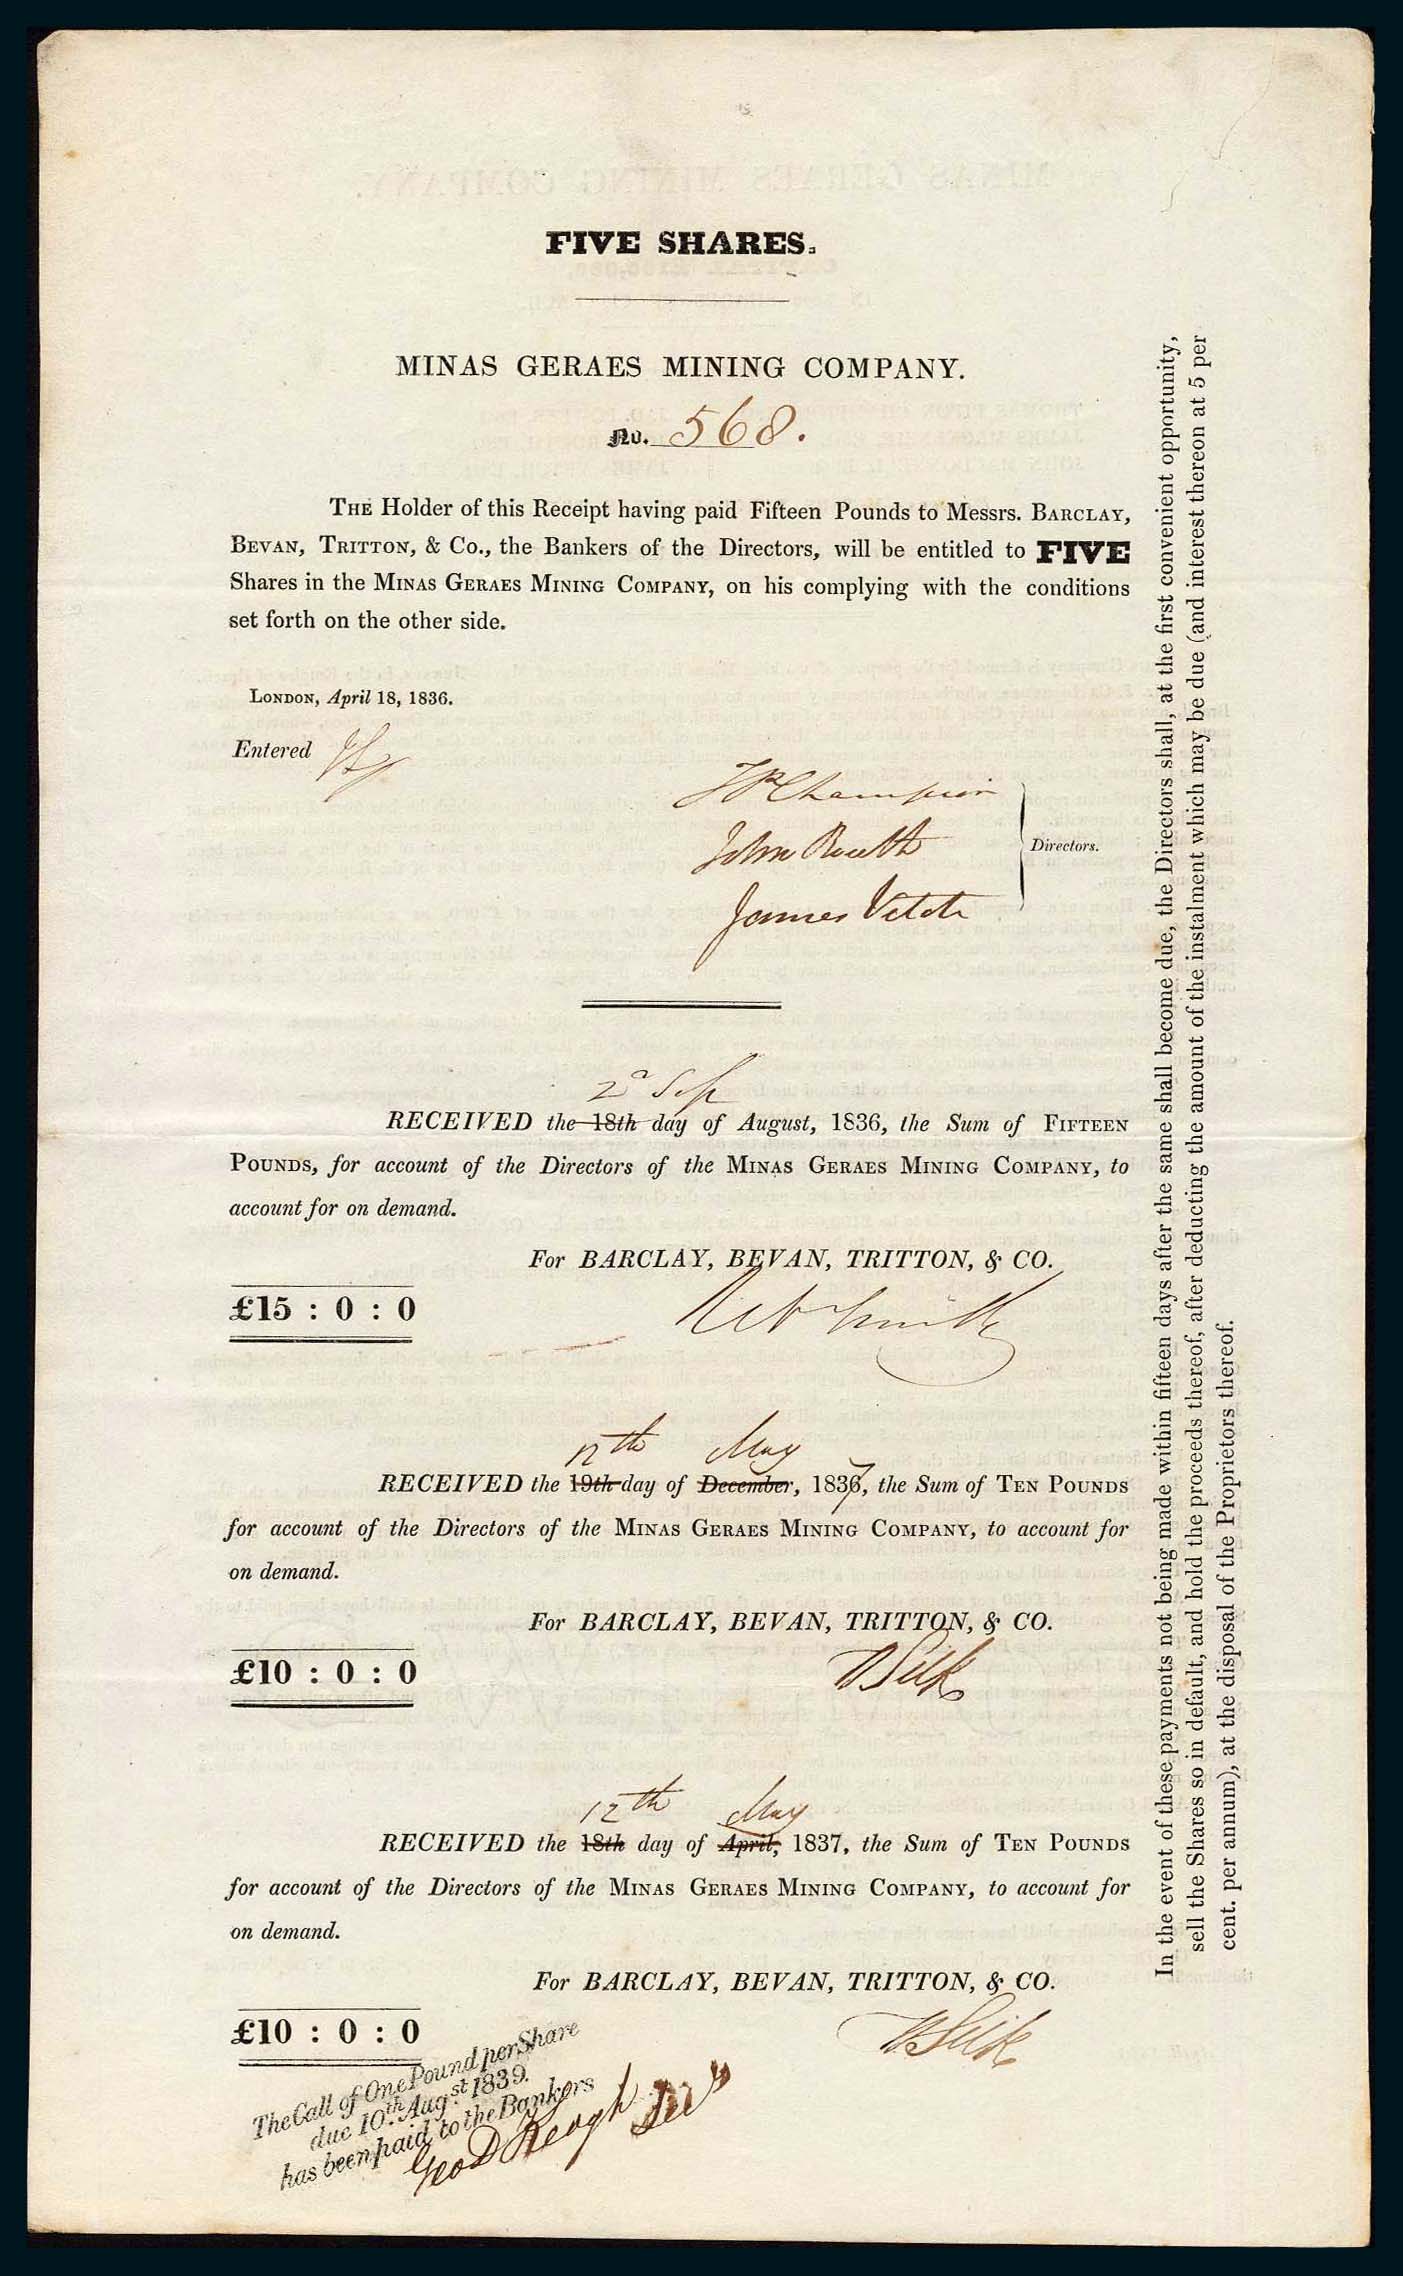 FIVE SHARES.
MINAS GERAES MINING COMPANY.
No. 568.
THE Holder of this Receipt having paid Fifteen Pounds to Messrs. BARCLAY,
BEVAN, TRITTON, & Co., the Bankers of the Directors, will be entitled to FIVE
Shares in the MINAS GERAES MINING COMPANY, on his complying with the conditions
set forth on the other side.
LONDON, April 18, 1836.
Entered
Champion
John Routh
Directors.
James Vetch
2d Sep
RECEIVED the 18th day of August, 1836, the Sum of FIFTEEN
POUNDS, for account of the Directors of the MINAS GERAES MINING COMPANY, to
account for on demand.
For BARCLAY, BEVAN, TRITTON, & CO.
£15 : 0 : 0
12th May
RECEIVED the 19th day of December, 1837, the Sum of TEN POUNDS
for account of the Directors of the MINAS GERAES MINING COMPANY, to account for
on demand.
For BARCLAY, BEVAN, TRITTON, & CO.
£10 : 0 : 0
12th May
RECEIVED the 18th day of April, 1837, the Sum of TEN POUNDS
for account of the Directors of the MINAS GERAES MINING COMPANY, to account for
on demand.
For BARCLAY, BEVAN, TRITTON, & CO.
£10 : 0 : 0
The Call of One Pound per Share
due 10th Augst. 1839.
has been paid to the Bankers
Geo D Keogh Secy
In the event of these payments not being made within fifteen days after the same shall become due, the Directors shall, at the first convenient opportunity,
sell the Shares so in default, and hold the proceeds thereof, after deducting the amount of the instalment which may be due (and interest thereon at 5 per
cent. per annum), at the disposal of the Proprietors thereof.